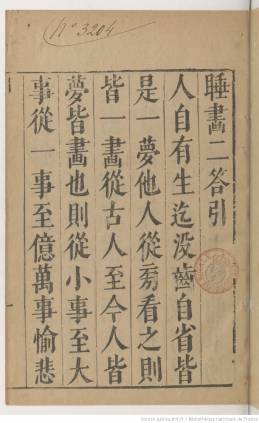 Nº 3204
睡畫二答引
人自有生迄没齒自省皆
是一夢他人從旁看之則
皆一畫從古人至今人皆
夢皆畫也則從小事至大
事從一事至億萬事愉悲
Source gallica.bnf.fr / Bibliothèque nationale de France